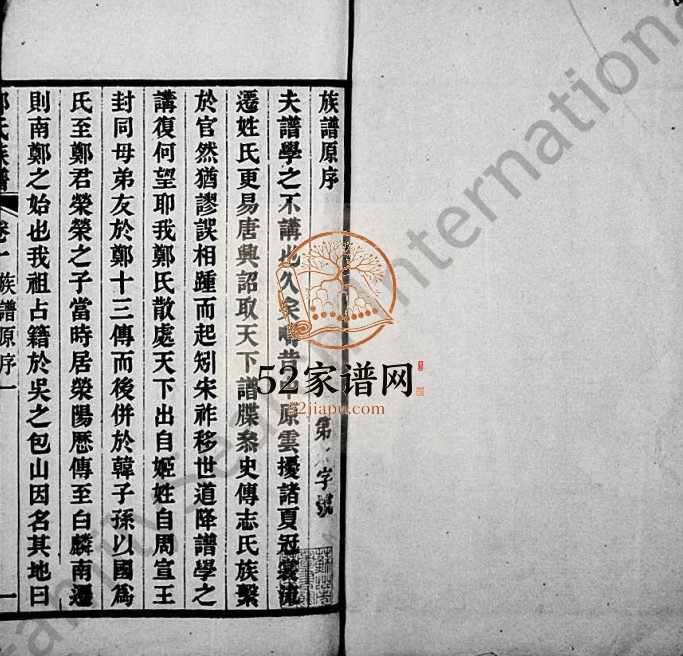 族譜原序
第 字號
夫譜學之不講也久矣 昔 原雲擾諸夏冠裳流
遷姓氏更易唐興詔取天下譜牒叅史傳志氏族繫
於官然猶謬誤相踵而起矧宋祚移世道降譜學之
講復何望耶我鄭氏散處天下出自姬姓自周宣王
封同母弟友於鄭十三傳而後併於韓子孫以國爲
氏至鄭君榮榮之子當時居滎陽歷傳至白麟南遷
則南鄭之始也我祖占籍於吳之包山因名其地曰
氏族譜
卷一 族譜原序 一
52家谱网
52jiapu.com
International